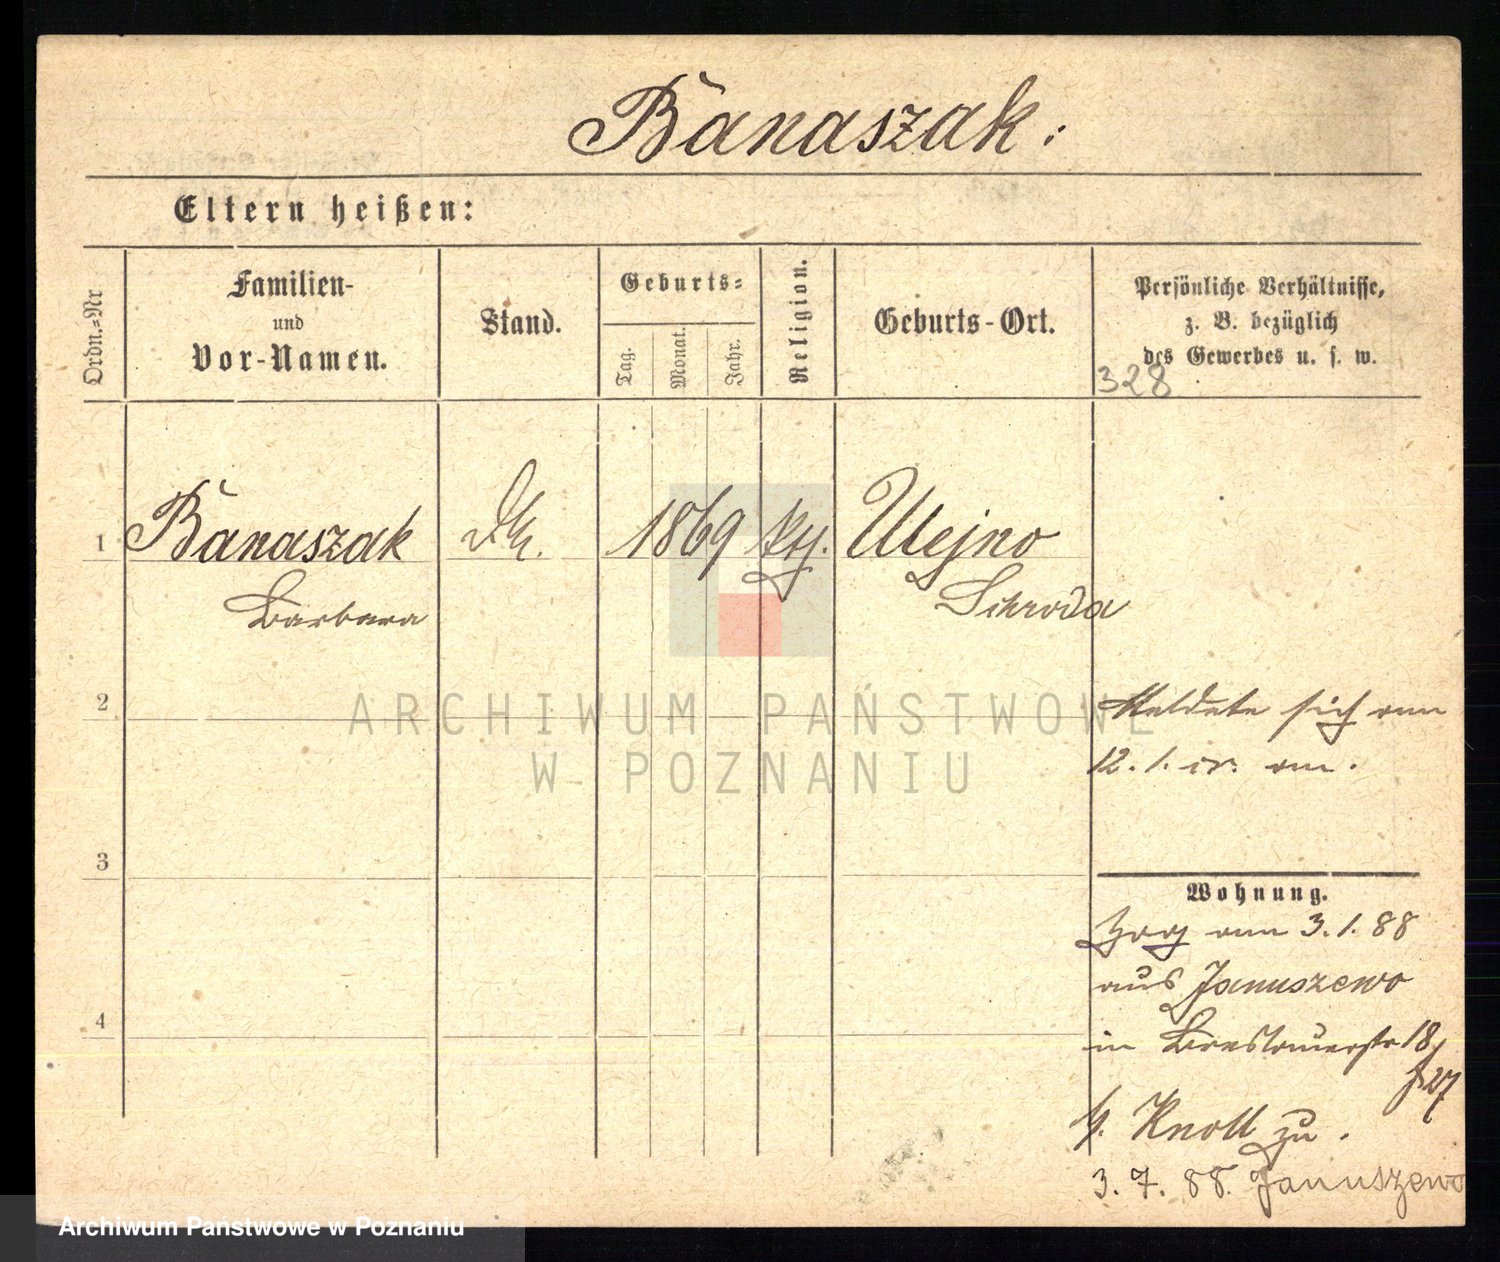 Banaszak:
Eltern heißen:
Ordn.=Nr
Familien-
und
Vor-Namen.
Stand.
Geburts=
Tag.
Monat.
Jahr.
Religion.
Geburts-Ort.
Persönliche Verhältnisse,
z. B. bezüglich
des Gewerbes u. s. w.
328
1
Banaszak
Barbara
1869
Ulejno
Schroda
2
Meldete sich am
12. 1. cr. an.
3
Wohnung.
Zog am 3. 1. 88
aus Januszewo
in Breslauerstr 18/
27
b. Knoll zu.
4
3. 7. 88. Januszewo
ARCHIWUM PAŃSTWOWE
W POZNANIU
Archiwum Państwowe w Poznaniu